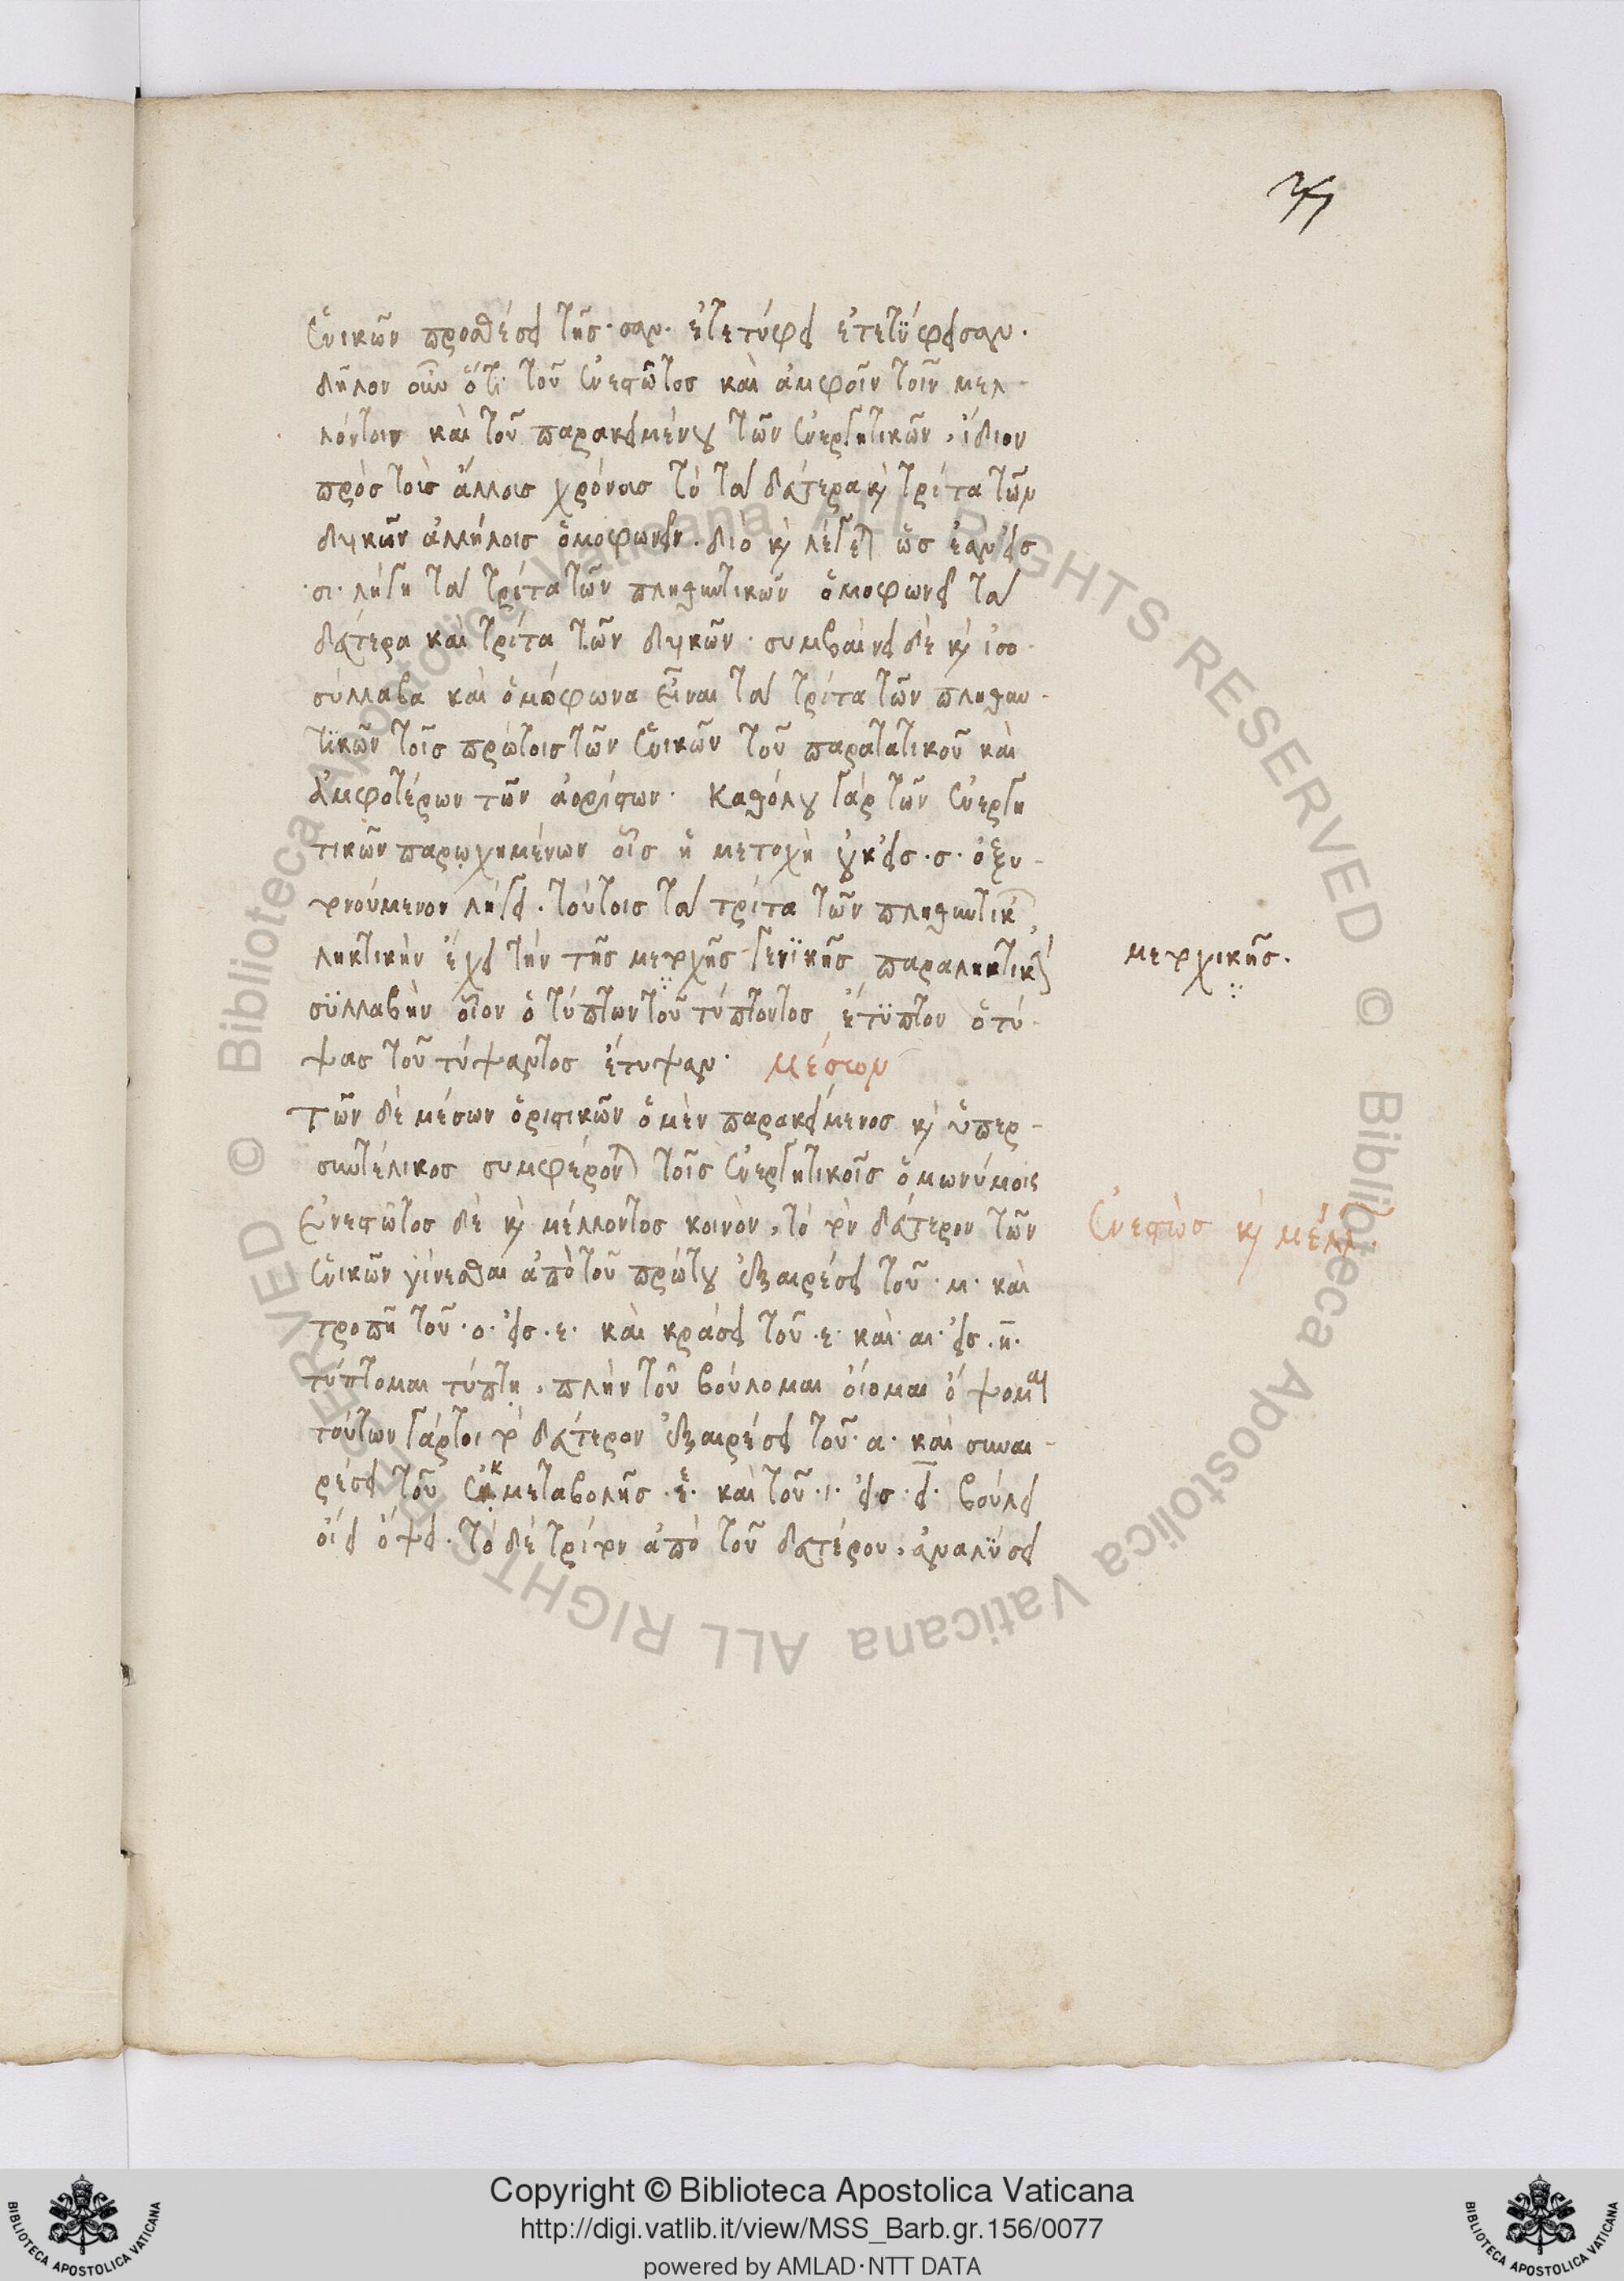 ἑνικῶν προσθέσει τῆς · σαν · ἐτετύφει ἐτετύφεισαν ·
δῆλον οὖν ὅτι τοῦ ἐνεστῶτος καὶ ἀμφοῖν τοῖν μελ-
λόντοιν καὶ τοῦ παρακειμένου τῶν ἐνεργητικῶν, ἴδιον
πρὸς τοὺς ἄλλους χρόνους τὸ τὰ δεύτερα καὶ τρίτα τῶν
δυϊκῶν ἀλλήλοις ὁμοφωνεῖν · διὸ καὶ λέγεται ὡς ἐὰν εἰς
· σι · λήγῃ τὰ τρίτα τῶν πληθυντικῶν ὁμοφωνεῖ τὰ
δεύτερα καὶ τρίτα τῶν δυϊκῶν · συμβαίνει δὲ καὶ ἰσο-
σύλλαβα καὶ ὁμόφωνα εἶναι τὰ τρίτα τῶν πληθυν-
τικῶν τοῖς πρώτοις τῶν ἑνικῶν τοῦ παρατατικοῦ καὶ
ἀμφοτέρων τῶν ἀορίστων · καθόλου γὰρ τῶν ἐνεργη
τικῶν παρῳχημένων οἷς ἡ μετοχὴ οὐκ εἰς · σ · ὀξυ-
τονούμενον λήγει · τούτοις τὰ τρίτα τῶν πληθυντικ
ληκτικὴν ἔχει τὴν τῆς μετοχῆς γενικῆς παραληκτικὴν
συλλαβὴν οἷον ὁ τύπτων τοῦ τύπτοντος ἔτυπτον ὁ τύ-
ψας τοῦ τύψαντος ἔτυψαν · μέσων
Τῶν δὲ μέσων ὁριστικῶν ὁ μὲν παρακείμενος καὶ ὑπερ-
συντέλικος συμφέρονται τοῖς ἐνεργητικοῖς ὁμωνύμοις
ἐνεστῶτος δὲ καὶ μέλλοντος κοινὸν, τὸ τὸν δεύτερον τῶν
ἑνικῶν γίνεσθαι ἀπὸ τοῦ πρώτου ἐξαιρέσει τοῦ · μ · καὶ
τροπῇ τοῦ · ο · εἰς · ε · καὶ κράσει τοῦ · ε · καὶ · αι · εἰς · η ·
τύπτομαι τύπτῃ, πλὴν τοῦ βούλομαι οἴομαι ὄψομαι
τούτων γάρ τοι τὸ δεύτερον ἐξαιρέσει τοῦ · α · καὶ συναι-
ρέσει τοῦ ἐκ μεταβολῆς · ε · καὶ τοῦ · ι · εἰς · ει · βούλει
οἴει ὄψει · τὸ δὲ τρίτον ἀπὸ τοῦ δευτέρου, ἀναλύσει
μετοχικῆς.
ἐνεστὼς καὶ μέλλ.
Copyright © Biblioteca Apostolica Vaticana
http://digi.vatlib.it/view/MSS_Barb.gr.156/0077
powered by AMLAD·NTT DATA